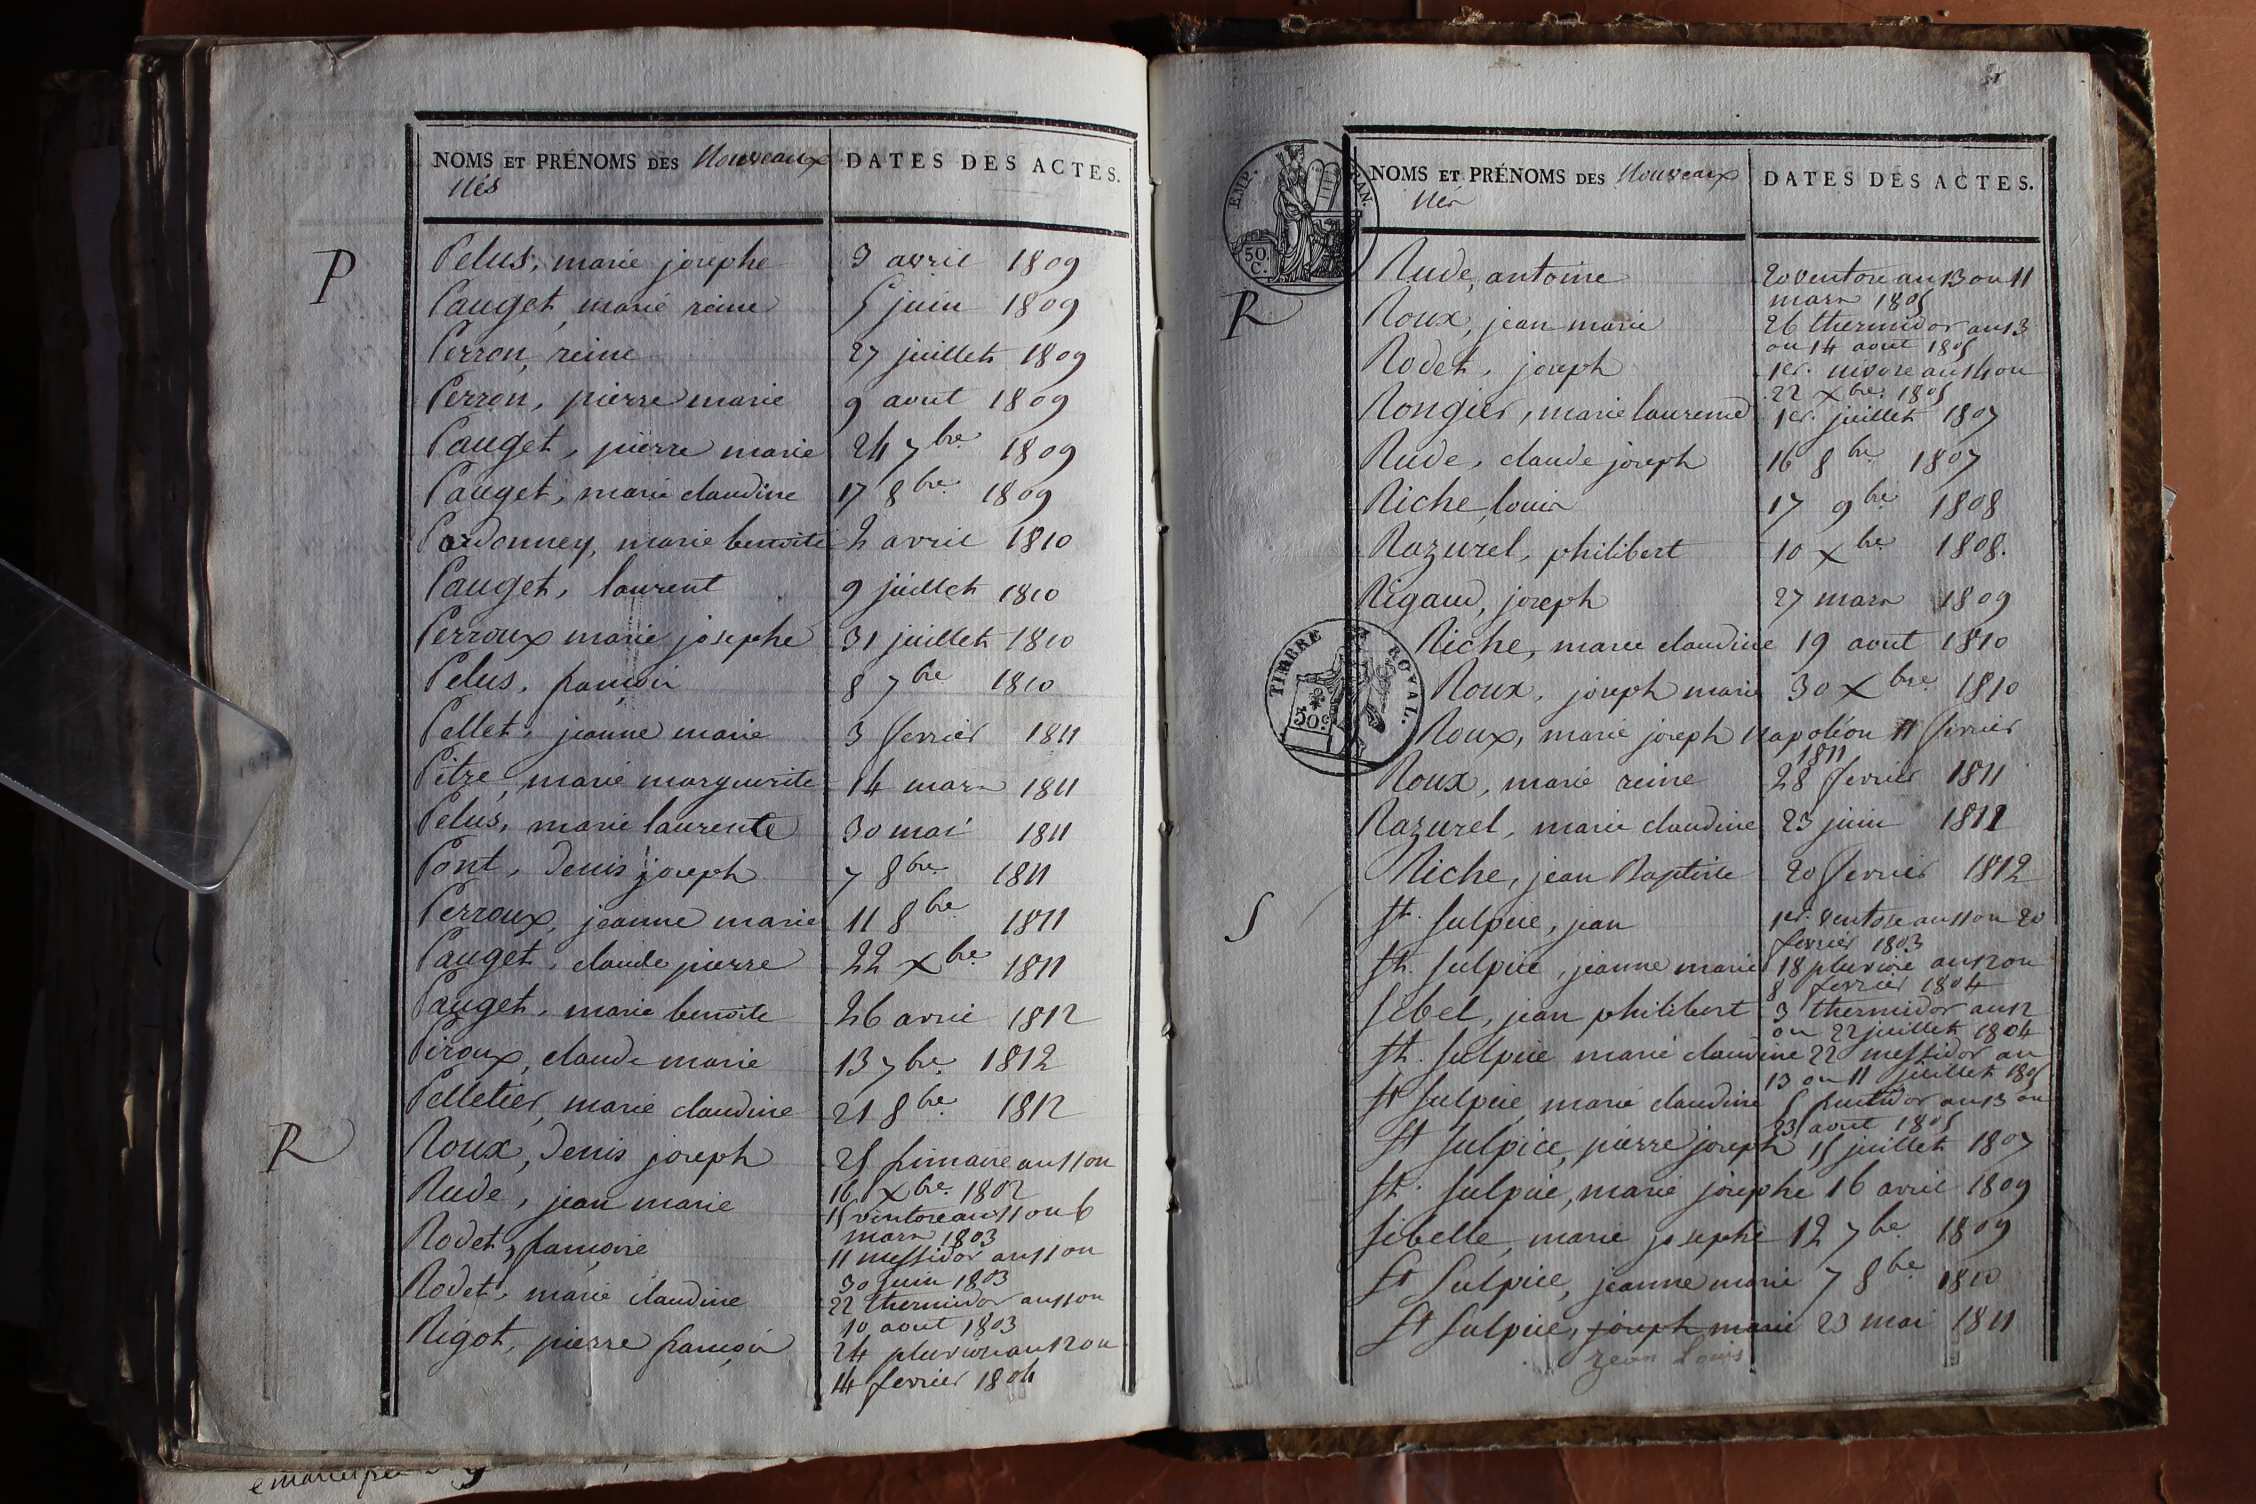 NOMS ET PRÉNOMS DES Nouveaux
Nés
DATES DES ACTES.
P
Pelus, marie josephe 3 avril 1809
Pauget, marie reine 5 juin 1809
Perron, reine 27 juillet 1809
Perron, pierre marie 9 aout 1809
Pauget, pierre marie 24 7bre 1809
Pauget, marie claudine 17 8bre 1809
Pardonney, marie benoite 2 avril 1810
Pauget, laurent 9 juillet 1810
Perroux marie josephe 31 juillet 1810
Pelus, françois 8 7bre 1810
Pellet, jeanne marie 3 fevrier 1811
Pitre, marie marguerite 14 mars 1811
Pelus, marie laurente 30 mai 1811
Pont, Denis joseph 7 8bre 1811
Perroux, jeanne marie 11 8bre 1811
Pauget, claude pierre 22 xbre 1811
Pauget, marie benoite 26 avril 1812
Piroux, claude marie 13 7bre 1812
Pelletier, marie claudine 21 8bre 1812
R
Roux, Denis joseph 25 frimaire an 11 ou
16 xbre 1802
Rude, jean marie 15 ventose an 11 ou 6
mars 1803
Rodet, françoise 11 messidor an 11 ou
30 juin 1803
Rodet, marie claudine 22 thermidor an 11 ou
10 aout 1803
Rigot, pierre françois 24 pluviose an 12 ou
14 fevrier 1804
EMP. FRAN.
50.
C.
NOMS ET PRÉNOMS DES Nouveaux
Nés
DATES DES ACTES.
R
Rude, antoine 20 ventose an 13 ou 11
mars 1805
Roux, jean marie 26 thermidor an 13
ou 14 aout 1805
Rodet, joseph 1er. nivose an 14 ou
22 xbre. 1805
Rongier, marie laurence 1er. juillet 1807
Rude, claude joseph 16 8bre 1807
Riche, louis 17 9bre 1808
Razurel, philibert 10 xbre 1808.
Rigaud, joseph 27 mars 1809
TIMBRE ROYAL.
30c
Riche, marie claudine 19 aout 1810
Roux, joseph marie 30 xbre 1810
Roux, marie joseph Napoléon 11 fevrier
1811
Roux, marie reine 28 fevrier 1811
Razurel, marie claudine 23 juin 1811
Riche, jean Baptiste 20 fevrier 1812
S
St. Sulpice, jean 1er. ventose an 11 ou 20
fevrier 1803
St. Sulpice, jeanne marie 18 pluviose an 12 ou
8 fevrier 1804
Sibel, jean philibert 3 thermidor an 12
ou 22 juillet 1804
St. Sulpice marie claudine 22 messidor an
13 ou 11 juillet 1805
St Sulpice, marie claudine 5 fructidor an 13 ou
23 aout 1805
St Sulpice, pierre joseph 15 juillet 1807
St. Sulpice, marie josephe 16 avril 1809
Sibelle, marie josephe 12 7bre 1809
St Sulpice, jeanne marie 7 8bre 1810
St Sulpice, joseph marie 23 mai 1811
jean Louis